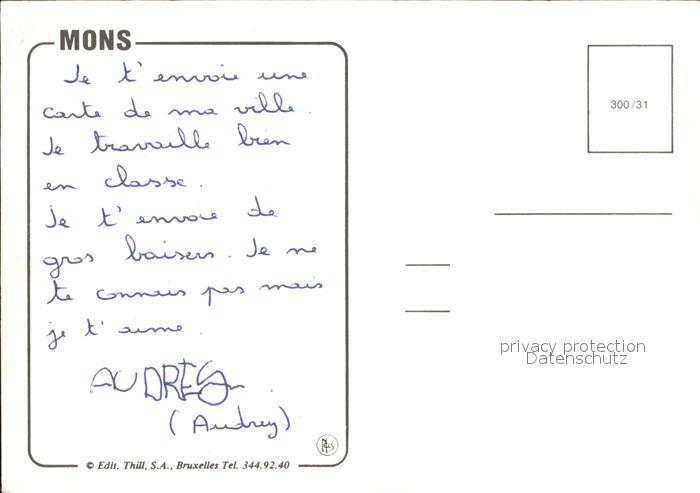 MONS
Je t'envoie une
carte de ma ville.
Je travaille bien
en classe.
Je t'envoie de
gros baisers. Je ne
te connais pas mais
je t'aime.
AUDREY
(Audrey)
© Edit. Thill, S.A., Bruxelles Tel. 344.92.40
300/31
privacy protection
Datenschutz